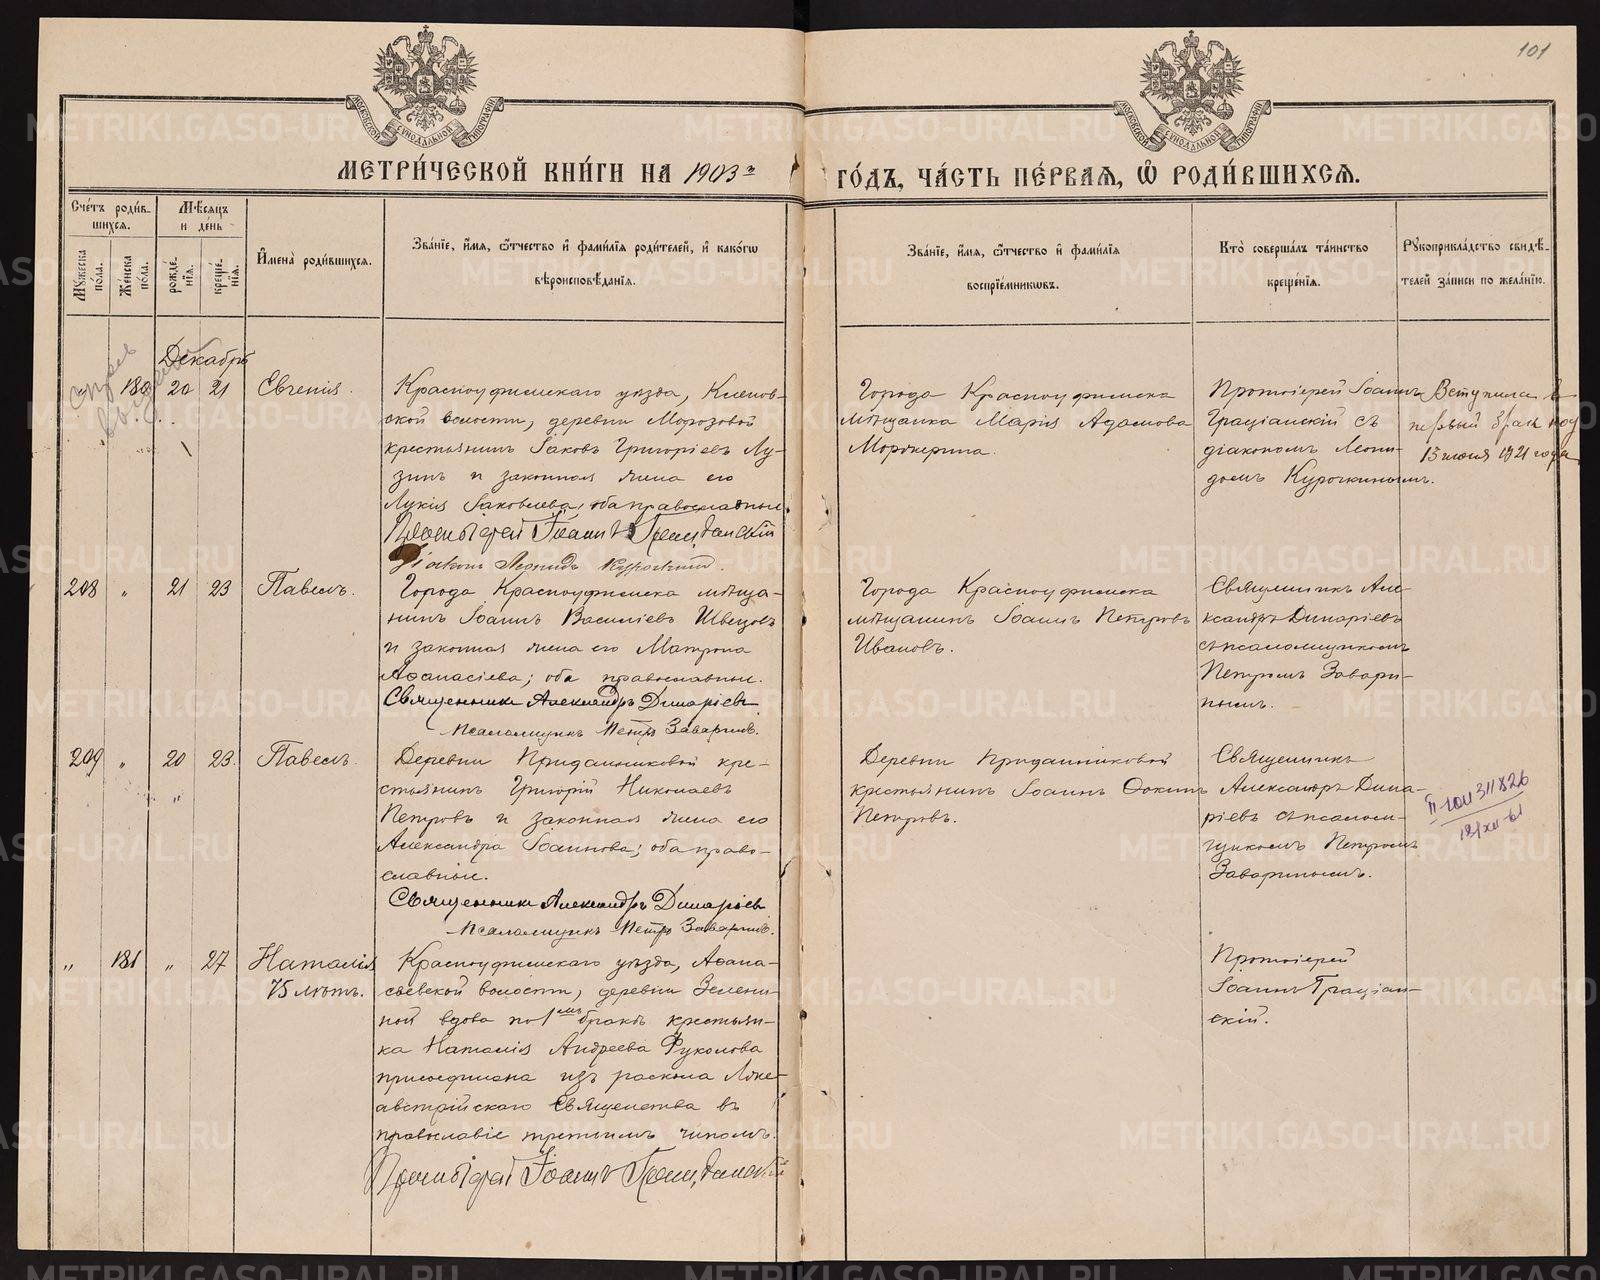 101
МОСКОВСКОЙ СѴНОДАЛЬНОЙ ТИПОГРАФІИ
МОСКОВСКОЙ СѴНОДАЛЬНОЙ ТИПОГРАФІИ
МЕТРИ́ЧЕСКОЙ КНИ́ГИ НА 1903й
ГО́ДЪ, ЧА́СТЬ ПЕ́РВАѦ, Ѽ РОДИ́ВШИХСѦ.
Сче́тъ роди́в-
шихсѧ.
Мꙋ́жеска по́ла.
Же́нска по́ла.
Мѣ́сѧцъ
и де́нь
рожде́-нїѧ.
креще́-нїѧ.
И҆мена̀ роди́вшихсѧ.
Зва́нїе, и҆́мѧ, ѻ҆́тчество и҆ фами́лїѧ роди́телей, и҆ како́гѡ
вѣроисповѣ́данїѧ.
Зва́нїе, и҆́мѧ, ѻ҆́тчество и҆ фами́лїѧ
воспрїе́мникѡвъ.
Кто̀ соверша́лъ та́инство
креще́нїѧ.
Рꙋкоприкла́дство свидѣ́-
телей за́писи по жела́нїю.
Декабрь
" 180 20 21 Евгенія.
Красноуфимскаго уѣзда, Кленов-
ской волости, деревни Морозовой
крестьянинъ Іаковъ Григоріевъ Лу-
зинъ и законная жена его
Лукія Іаковлева; оба православные.
Протоіерей Іоаннъ Граціанскій
Діаконъ Леонидъ Курочкинъ.
Города Красноуфимска
мѣщанка Марія Адамова
Протоіерей Іоаннъ
Граціанскій съ
діакономъ Леони-
домъ Курочкинымъ.
Вступила в
первый брак
13 июня 1921 года
208 " 21 23 Павелъ.
Города Красноуфимска мѣща-
нинъ Іоаннъ Василіевъ Швецовъ
и законная жена его Матрона
Аѳанасіева; оба православные.
Священникъ Александръ Динаріевъ
Псаломщикъ Петръ Заваринъ.
Города Красноуфимска
мѣщанинъ Іоаннъ Петровъ
Ивановъ.
Священникъ Але-
ксандръ Динаріевъ
съ псаломщикомъ
Петромъ Завари-
нымъ.
209 " 20 23 Павелъ.
"
Деревни Приданниковой кре-
стьянинъ Григорій Николаевъ
Петровъ и законная жена его
Александра Іоаннова; оба право-
славные.
Священникъ Александръ Динаріевъ
Псаломщикъ Петръ Заваринъ.
Деревни Приданниковой
крестьянинъ Іоаннъ Ѳокинъ
Петровъ.
Священникъ
Александръ Дина-
ріевъ съ псалом-
щикомъ Петромъ
Завариннымъ.
II-ЮИ 311826
" 181 " 27 Наталія
75 лѣтъ.
Красноуфимскаго уѣзда, Аѳана-
сьевской волости, деревни Зелени-
ной вдова по 1емъ бракѣ крестьян-
ка Наталія Андреева Фуколова
присоединена изъ раскола Лже-
австрійскаго Священства въ
православіе третьимъ чиномъ.
Протоіерей Іоаннъ Граціанскій
Протоіерей
Іоаннъ Граціан-
скій.
METRIKI.GASO-URAL.RU